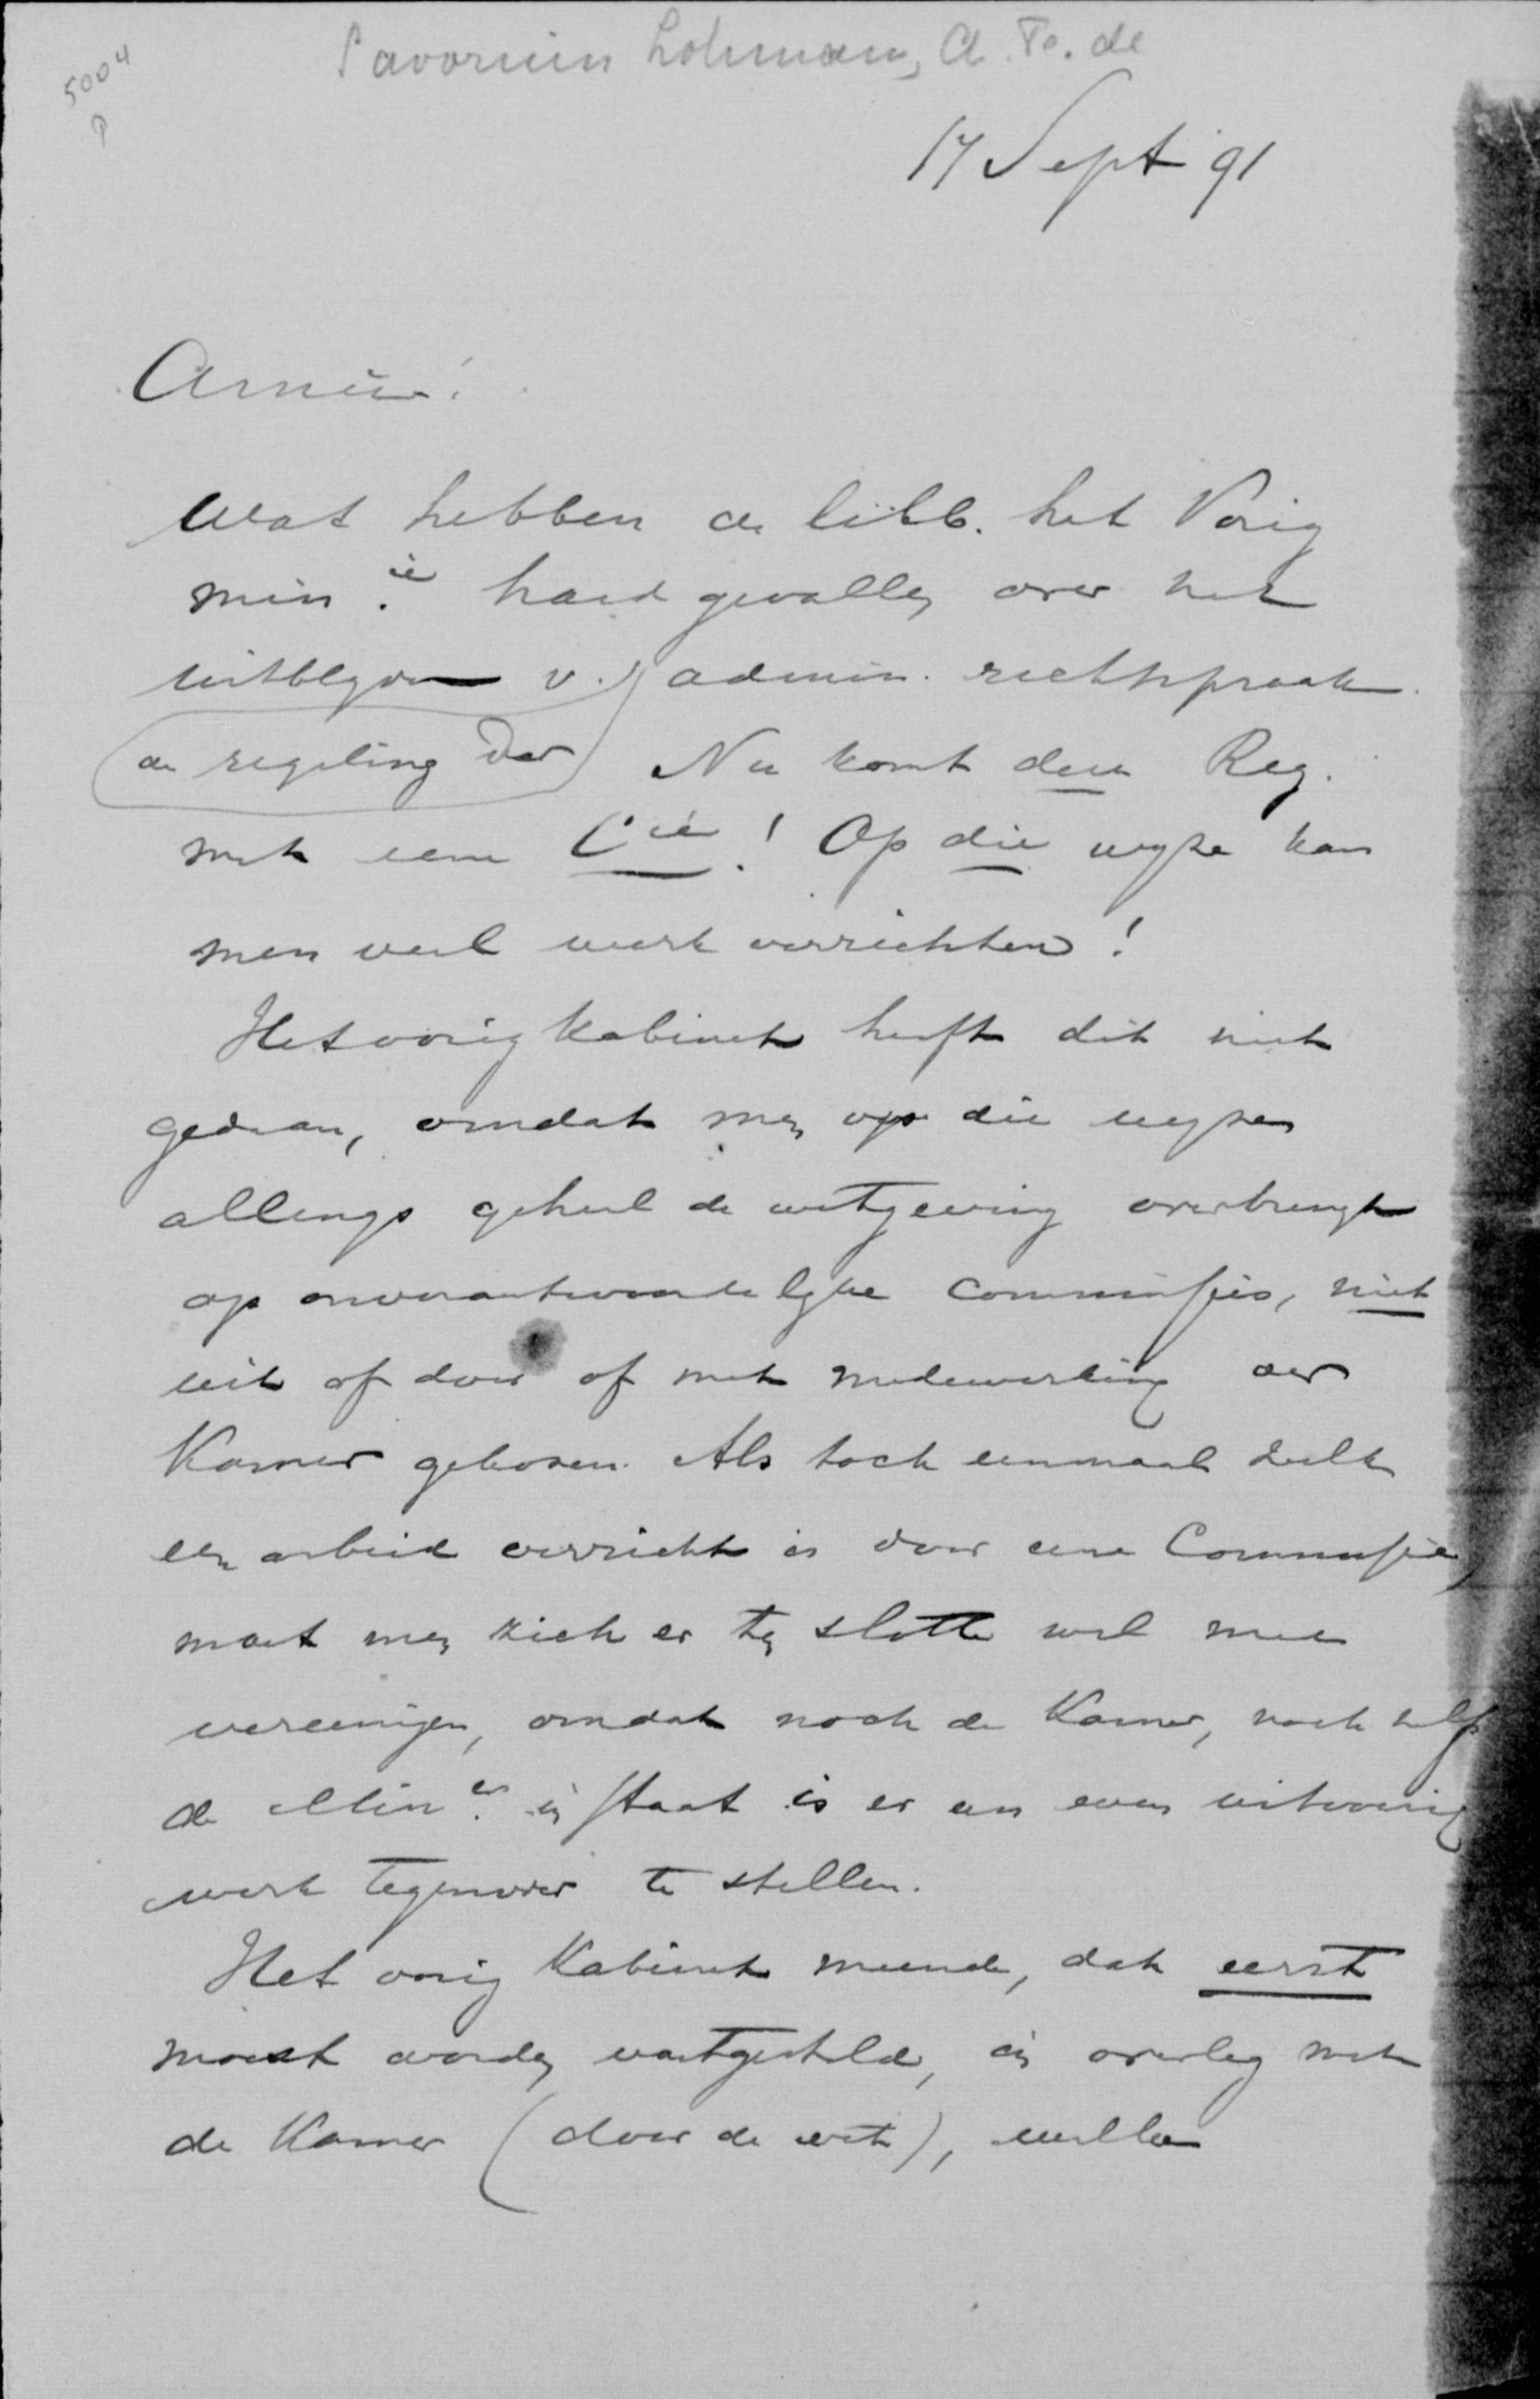 Savornin Lohman, A. F. de
5004
P
17 Sept 91
Amice!
Wat hebben de libb. het Vorig
min.ie hard gevallen over het
uitblyven v. admin. rechtspraak.
de regeling der
Nu komt deze Reg.
met eene Cie! Op die wyze kan
men veel werk verrichten!
Het vorig kabinet heeft dit niet
gedaan, omdat men op die wyze
allengs geheel de wetgeving overbrengt
op onverantwoordelyke commissies, niet
uit of door of met medewerking der
Kamer gekozen. Als toch eenmaal zulk
een arbeid verricht is door eene Commissie,
moet men zich er ten slotte wel mee
vereenigen, omdat noch de Kamer, noch zelfs
de Min.er in staat is er een even uitvoerig
werk tegenover te stellen.
Het vorig Kabinet meende, dat eerst
moest worden vastgesteld, in overleg met
de Kamer (door de wet), welke